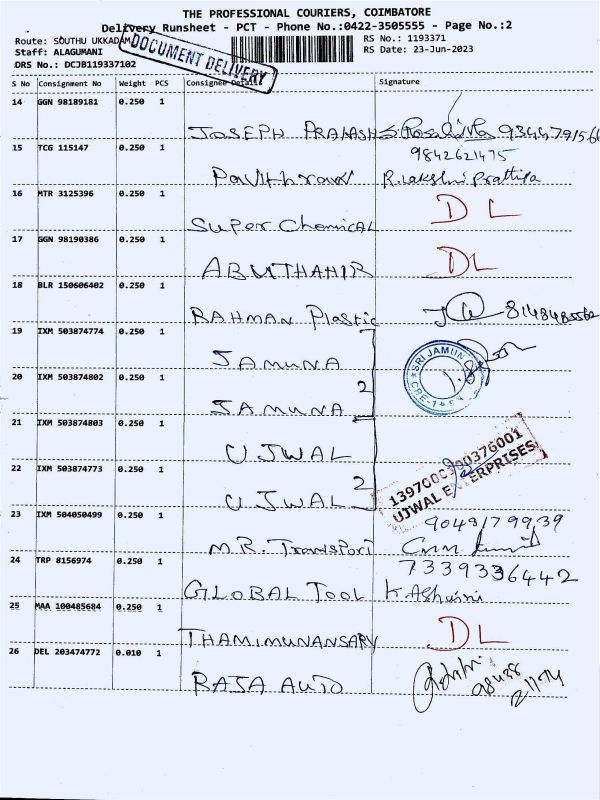 THE PROFESSIONAL COURIERS, COIMBATORE
Delivery Runsheet - PCT - Phone No.:0422-3505555 - Page No.:2
Route: SOUTHU UKKADAM
RS No.: 1193371
Staff: ALAGUMANI
RS Date: 23-Jun-2023
DRS No.: DCJB119337102
DOCUMENT DELIVERY
S No Consignment No Weight PCS Consignee Details Signature
14 GGN 98189181 0.250 1
JOSEPH PRAKASH
15 TCG 115147 0.250 1
9842621475
Pavithraw R.Lakshmi Prattipa
16 MTR 3125396 0.250 1
Super Chemical DL
17 GGN 98190386 0.250 1
ABUTHAHIR DL
18 BLR 150606402 0.250 1
RAHMAN Plastic
19 IXM 503874774 0.250 1
JAMUNA
SRI JAMUN
20 IXM 503874802 0.250 1
2
JAMUNA
CBE-1
21 IXM 503874803 0.250 1
UJWAL
1397000 00376001
22 IXM 503874773 0.250 1
2
UJWAL
UJWAL ENTERPRISES
23 IXM 504050499 0.250 1
9049179939
M.R. Transport
24 TRP 8156974 0.250 1
7339336442
GLOBAL TOOL K.Ashwini
25 MAA 100485684 0.250 1
THAMIMUNANSARY DL
26 DEL 203474772 0.010 1
RAJA AUTO